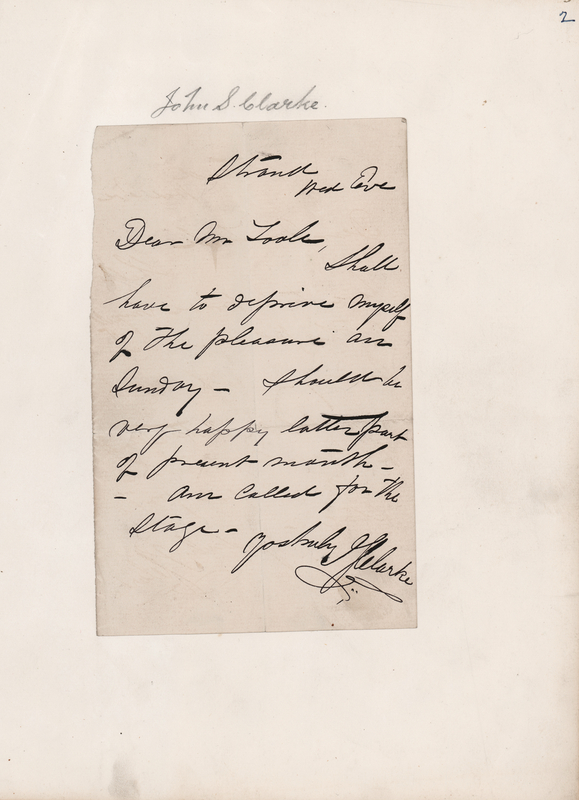 2
John S. Clarke.
Strand
Wed Eve
Dear Mr Toole,
Shall
have to deprive myself
of the pleasure on
Sunday - Should be
very happy latter part
of present month -
- Am called for the
Stage -
Yos truly JSClarke